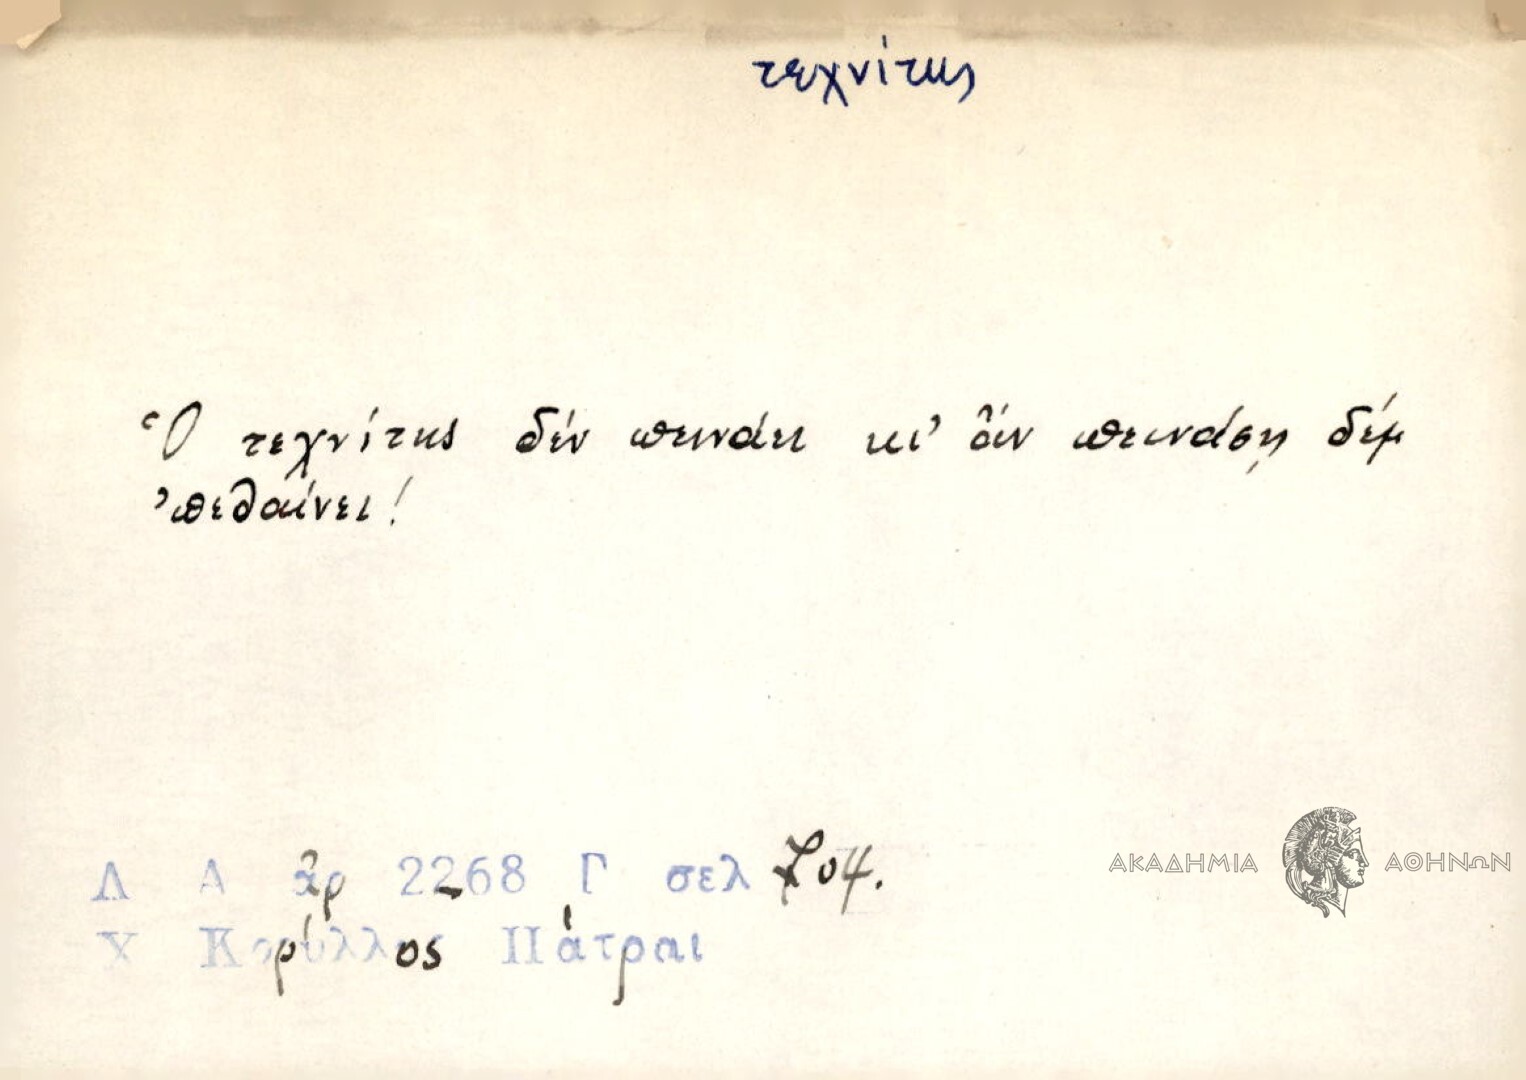 τεχνίτης
Ὁ τεχνίτης δέν πεινάει κι' ἄν πεινάσῃ δέμ
'πεθαίνει!
Λ Α ἀρ 2268 Γ σελ
Χ Κορύλλος Πάτραι
ΑΚΑΔΗΜΙΑ ΑΘΗΝΩΝ